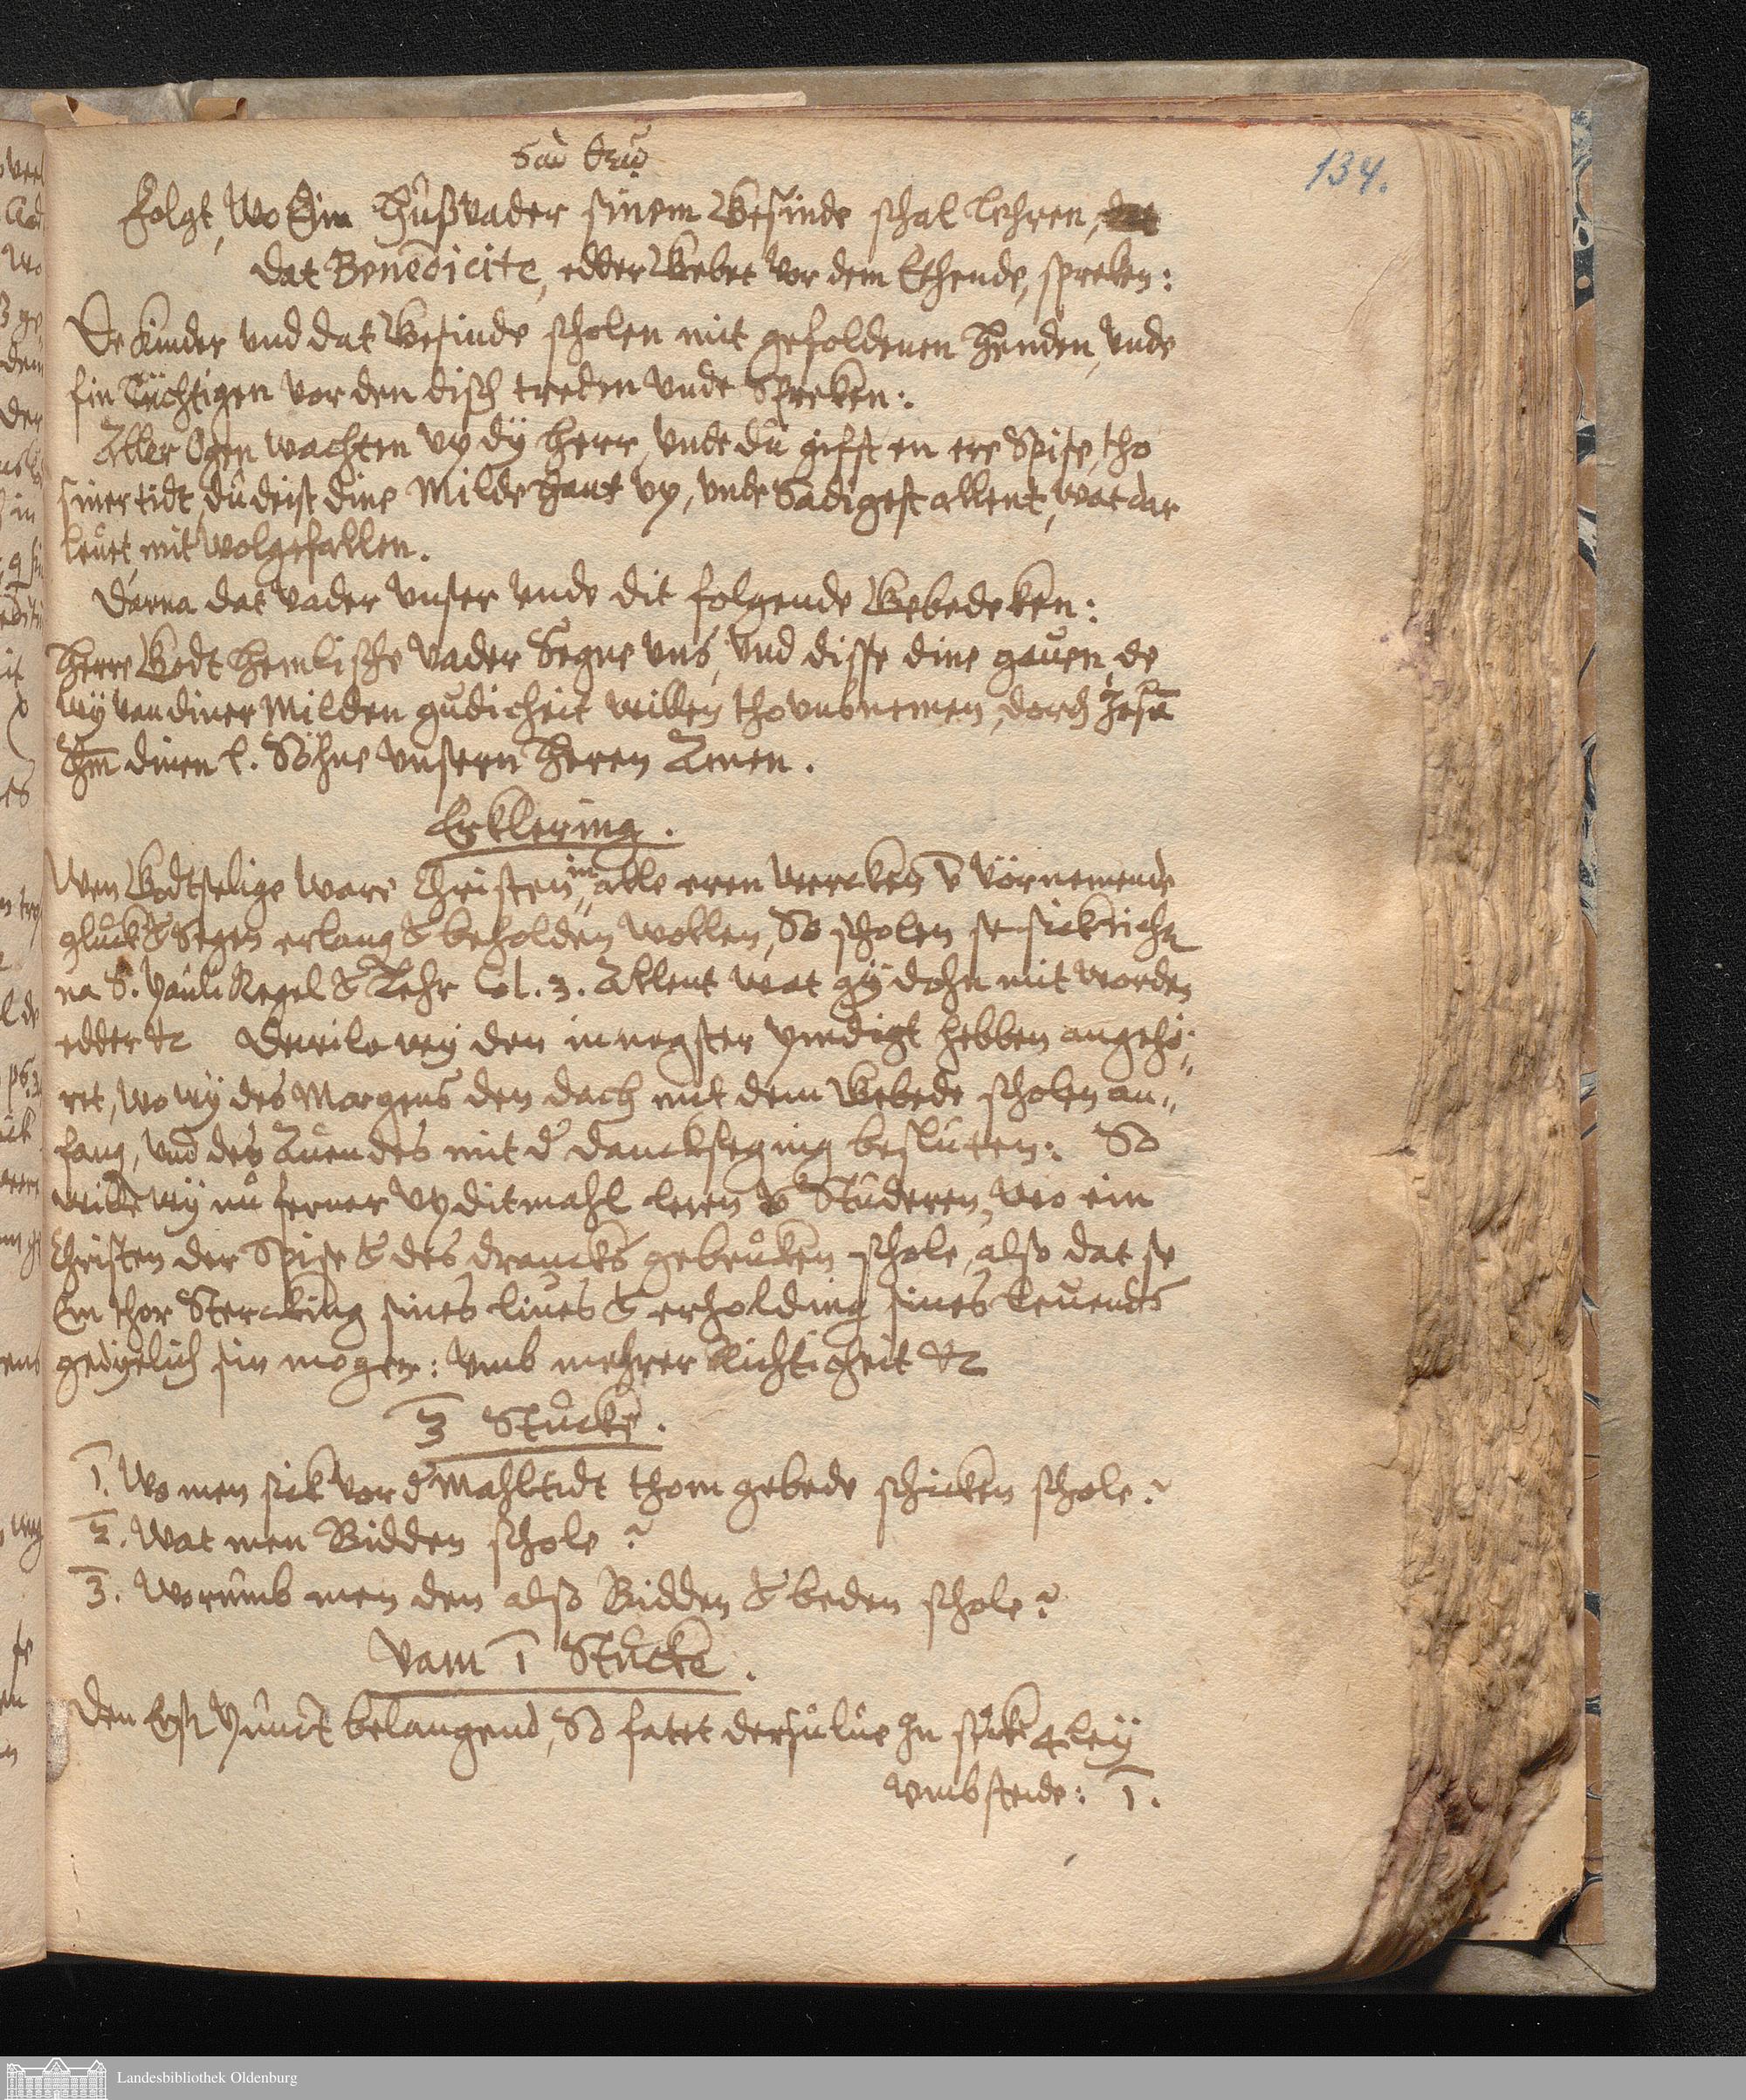 134.
Folgt, Wo Ein Hußvader sinem Gesinde schal Lehren,
dat Benedicite, edder Gebet vor dem Ethende, spreken:
De Kinder vnd dat Gesinde scholen mit gefoldenen Henden, vnde
fin Tüchtigen vor den disch treden vnde Spreken:
Aller Ogen wachten vp dy Herr, vnde du gifst en ere Spise, tho
siner tidt, du deist dine Milde Hant vp, vnde Sadigest allent, wat dar
leuet mit wolgefallen.
Darna dat Vader vnser vnde dit folgende Gebedeken:
Herre Godt Hemlische Vader Segne vns, vnd disse dine gauen, de
wy van diner Milden gudicheit willen tho vns nemen, dorch Jesū
Chm̄ dinen l. Söhne vnsern Heren Amen.
Erklering.
Wen Godtselige ware Christen in alle eren wercken v̄ vörnemende
gluck & Segen erlang & beholden wollen, So scholen se sick richtē
na S. Pauli Regel & Lehr Col. 3. Allent wat gy dohn mit worden
edder &c Dewile wy den in negster predigt hebben angehö-
ret, wo wy des Morgens den dach mit dem Gebede scholen an-
fang, vnd des Auendes mit d' dancksegging besluten: So
wille wy nu ferner vp ditmahl leren v̄ Studeren, wo ein
Christen der Spise & des drancks gebruken schole, also dat se
Em thor Stercking sines liues & erholding sines Leuends
gedyelich sin mogen: vmb mehrer Richticheit &c
3 Stucke.
1. Wo men sick vor d' Mahltidt thom gebede schicken schole?
2. Wat men Bidden schole?
3. Worumb men den also Bidden & beden schole?
Vam 1 Stucke.
Den Erstē Punct belangend, So fatet dersulue In sick 4 ley
vmbstende: 1.
Landesbibliothek Oldenburg